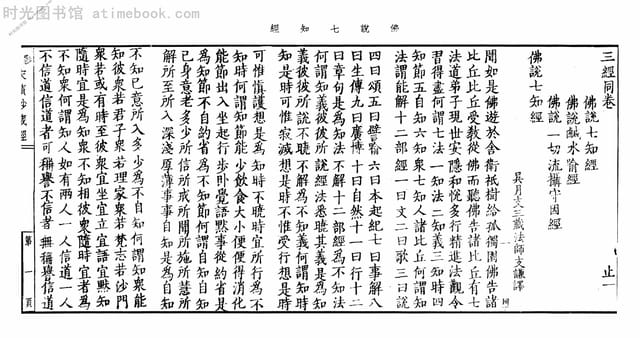 时光图书馆 atimebook.com
佛說七知經
三經同卷 止一
佛說七知經
佛說鹹水喻經
佛說一切流攝守因經
佛說七知經
吳月支三藏法師支謙譯
聞如是佛遊於舍衛祇樹給孤獨園佛告諸
比丘比丘受教從佛而聽佛告諸比丘有七
法道弟子現世安隱和悅多行精進法觀令
習得盡何謂七法一知法二知義三知時四
知節五自知六知眾七知人諸比丘何謂知
法謂能解十二部經一曰文二曰歌三曰說
四曰頌五曰譬喻六曰本起紀七曰事解八
曰生傳九曰廣博十曰自然十一曰行十二
曰章句是為知法不解十二部經為不知法
何謂知義彼彼所說經法悉曉其義是為知
義彼彼所說不曉不解為不知義何謂知時
是時可惟寂滅想是時不惟受行想是時
可惟慎護想是為知時不曉時宜所行為不
知時何謂知節能少飲食大小便便得消化
能節出入坐起行步臥覺語默事從約省是
為知節不自約省為不知節何謂自知自知
己身意老多少所信所戒所聞所施所慧所
解所至所入深淺厚薄事事自知是為自知
不知己意所入多少為不自知何謂知眾能
知彼眾若君子眾若理家眾若梵志若沙門
眾若或有時至彼眾宜坐宜立宜語宜默知
隨時宜是為知眾不知相彼眾隨時宜者為
不知眾何謂知人如有兩人一人信道一人
不信道信道者可稱譽不信者無稱譽信道
第一頁